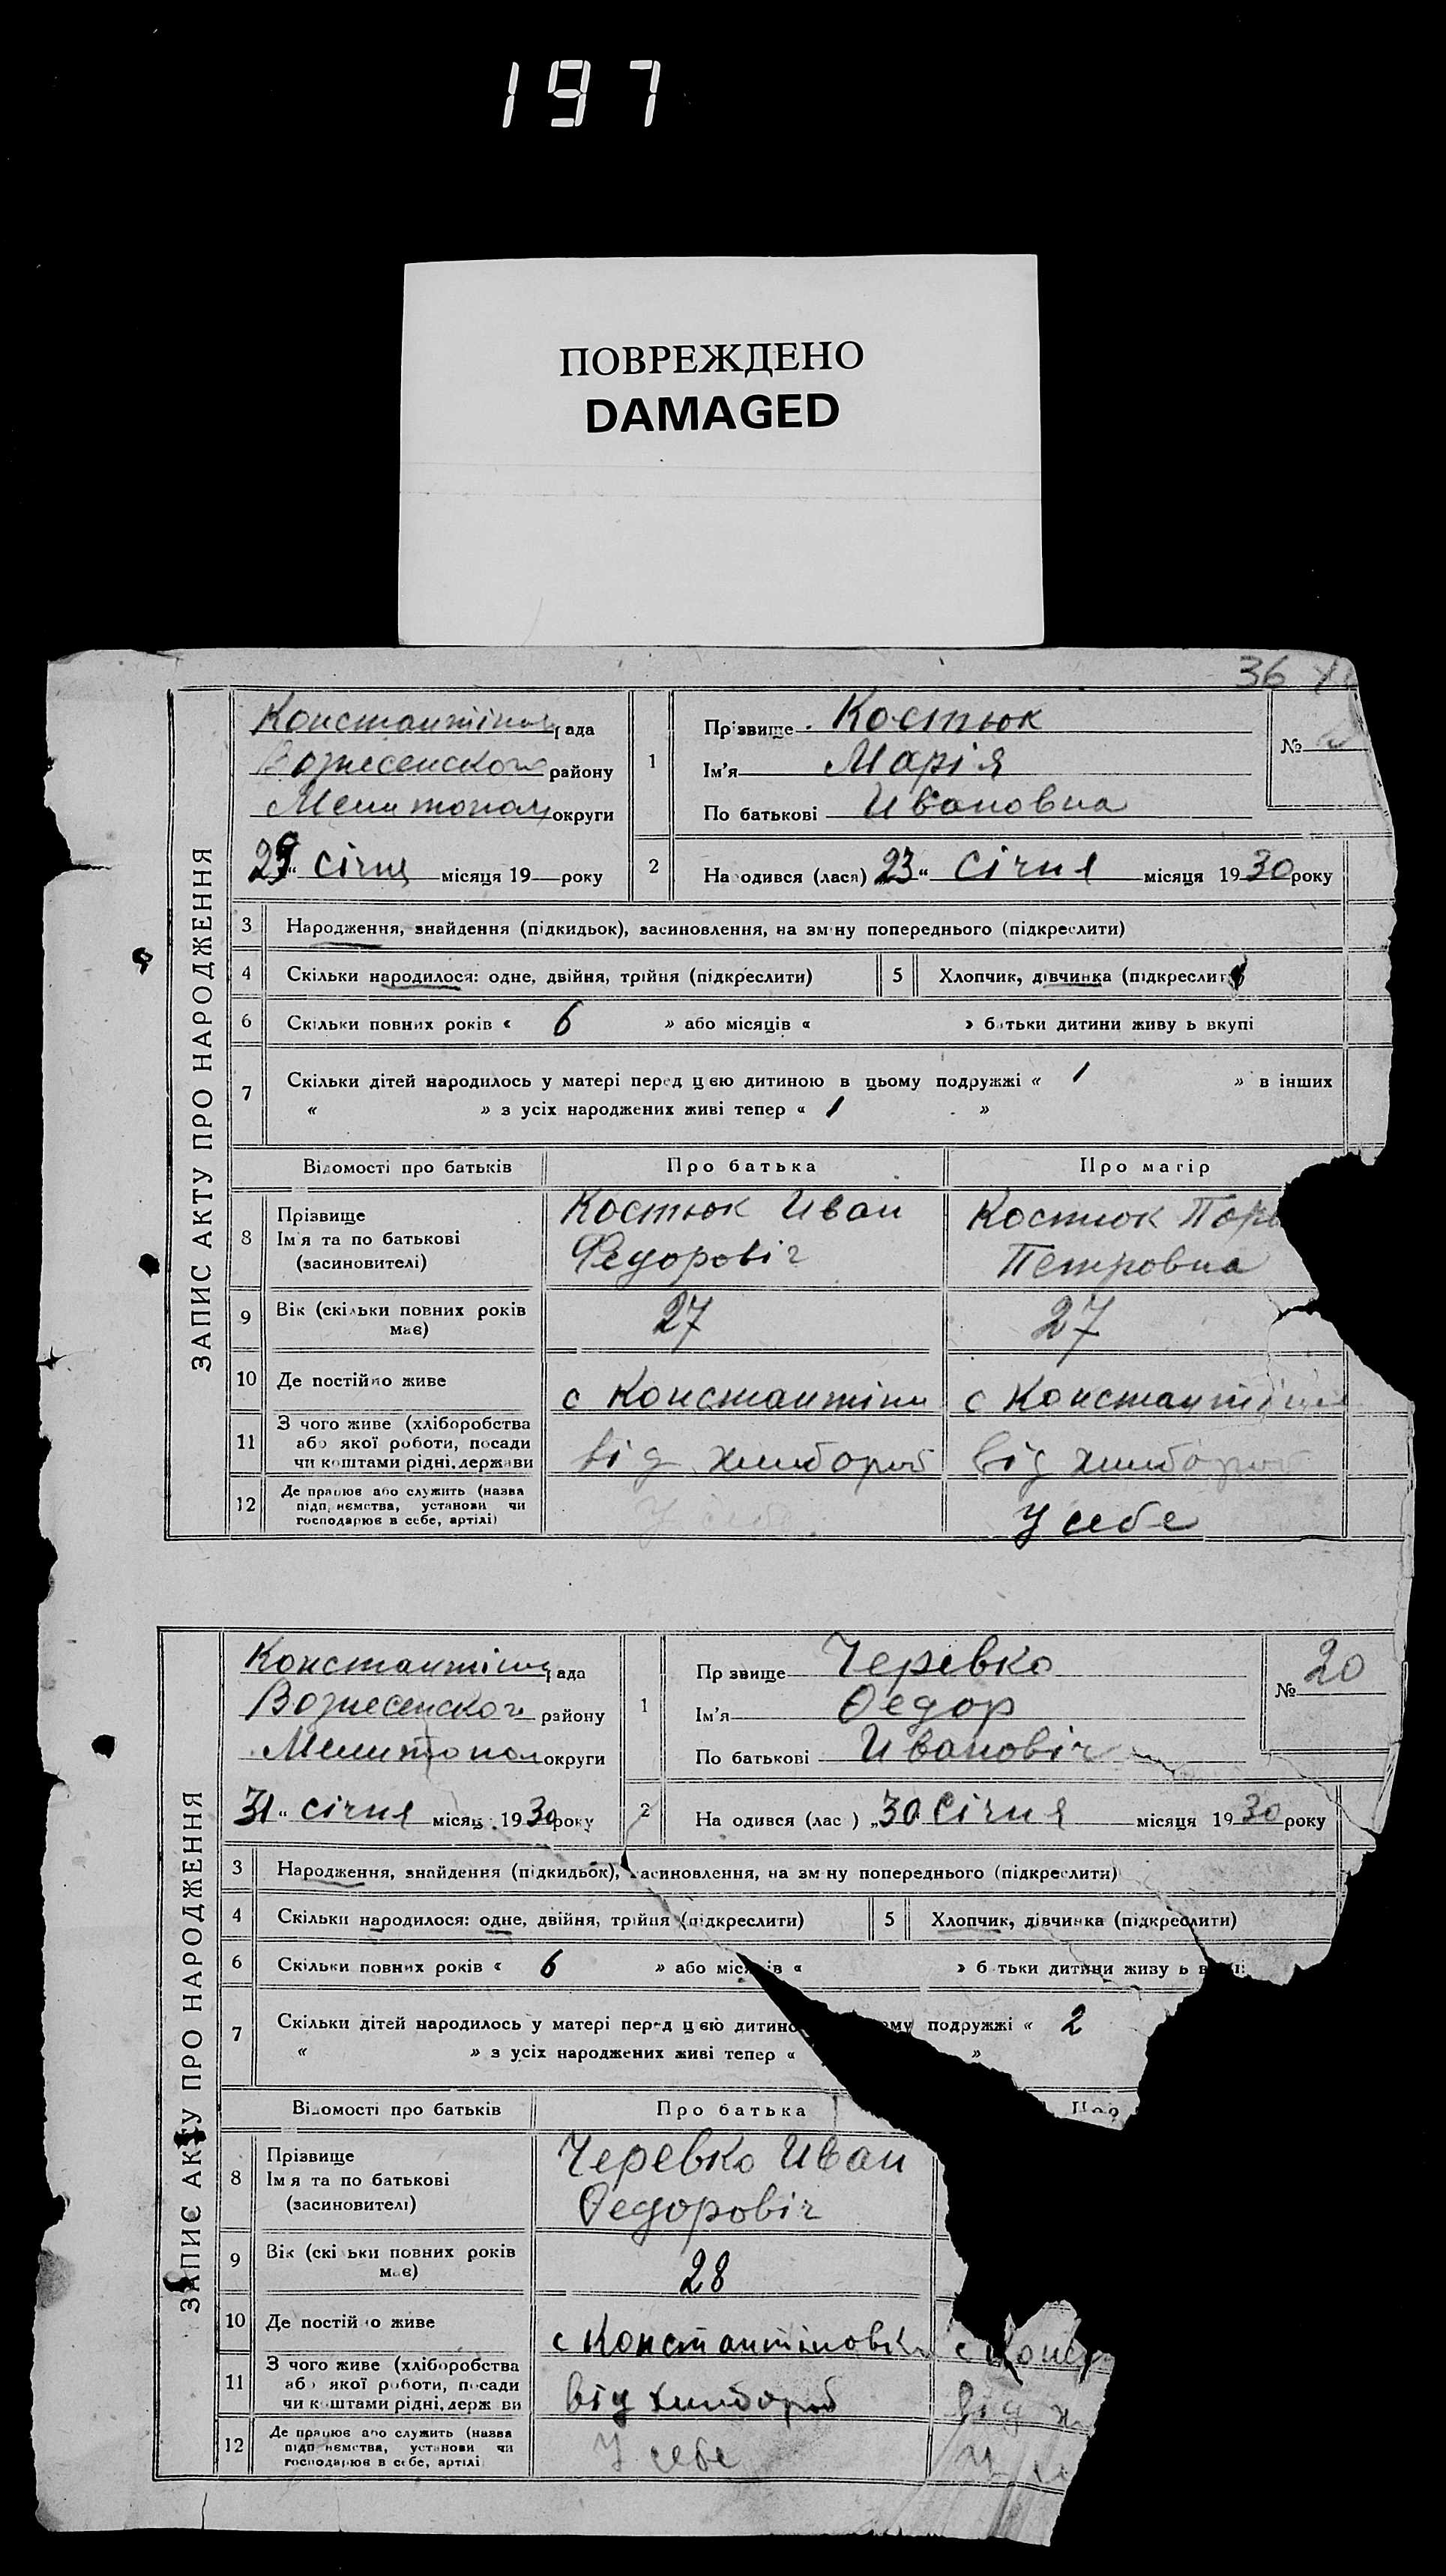 197
ПОВРЕЖДЕНО
DAMAGED
36
ЗАПИС АКТУ ПРО НАРОДЖЕННЯ
Константіно рада
Вознесенского району
Мелитопол округи
29 „ січня місяця 19 року
1
Прізвище Костюк
Ім'я Марія
По батькові Ивановна
№
2
На одився (лася) 23 „ Січня місяця 1930 року
3 Народження, знайдення (підкидьок), засиновлення, на зм ну попереднього (підкреслити)
4 Скільки народилося: одне, двійня, трійня (підкреслити)
5 Хлопчик, дівчинка (підкреслит
6 Скільки повних років « 6 » або місяців « » батьки дитини живу ь вкупі
7 Скільки дітей народилось у матері перед цією дитиною в цьому подружжі « 1 » в інших
« » з усіх народжених живі тепер « 1 »
Відомості про батьків Про батька Про матір
8 Прізвище
Ім'я та по батькові
(засновителі)
Костюк Иван
Федоровіч
Костюк Пар
Петровна
9 Вік (скільки повних років
має)
27
27
10 Де постійно живе
с Константіни
с Константіни
11 З чого живе (хліборобства
або якої роботи, посади
чи коштами рідні, держави
від хлибороб
від хлибороб
12 Де працює або служить (назва
підп ємства, установи чи
господарює в себе, артілі)
У себе
У себе
ЗАПИС АКТУ ПРО НАРОДЖЕННЯ
Константіно рада
Вознесенского району
Мелитопол округи
31 „ січня місяц 1930 року
1
Пр звище Черевко
Ім'я Федор
По батькові Ивановіч
№ 20
2
На одився (лас ) „30 Січня місяця 1930 року
3 Народження, знайдення (підкидьок), засиновлення, на зм ну попереднього (підкреслити)
4 Скільки народилося: одне, двійня, трійня (підкреслити)
5 Хлопчик, дівчинка (підкреслити)
6 Скільки повних років « 6 » або місяців « » б тьки дитини живу ь в
7 Скільки дітей народилось у матері перед цією дитино ому подружжі « 2
« » з усіх народжених живі тепер « »
Відомості про батьків Про батька Про
8 Прізвище
Ім'я та по батькові
(засиновителі)
Черевко Иван
Федоровіч
9 Вік (скі ьки повних років
має)
28
10 Де постій о живе
с Константіновк
с Конст
11 З чого живе (хліборобства
або якої роботи, посади
чи коштами рідні, держ ви
від хлибороб
від х
12 Де працює або служить (назва
підп ємства, установи чи
господарює в себе, артілі
У себе